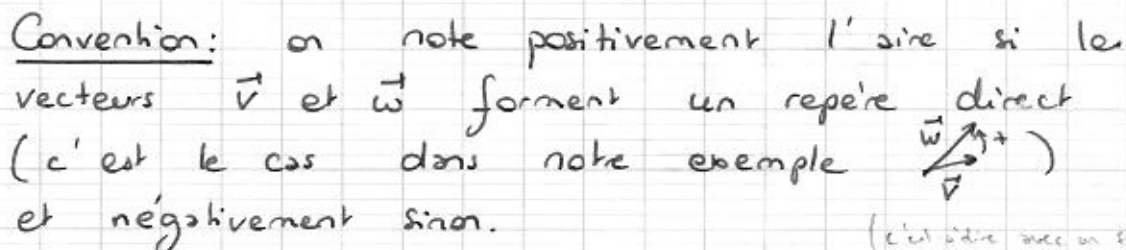 Convention: on note positivement l'aire si le
vecteurs v⃗ et w⃗ forment un repère direct
(c'est le cas dans notre exemple w⃗ + v⃗ )
et négativement sinon.
(c'est à dire avec un s